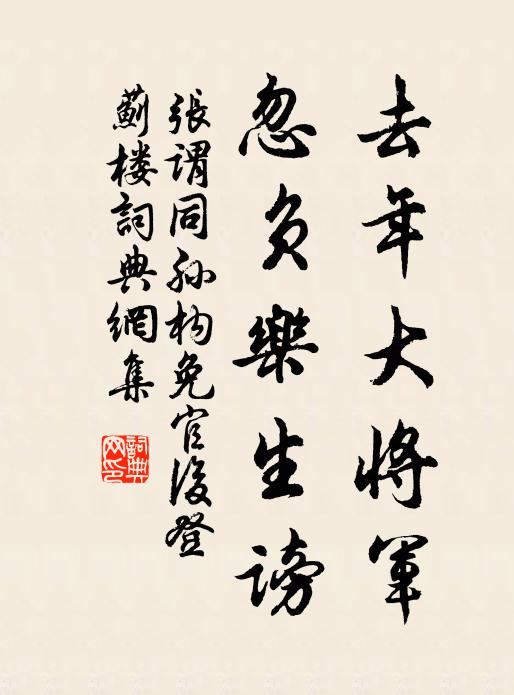 去年大將軍
忽负樂生謗
張谓同孙构免官後登
薊楼詞典網集
詞典
网印